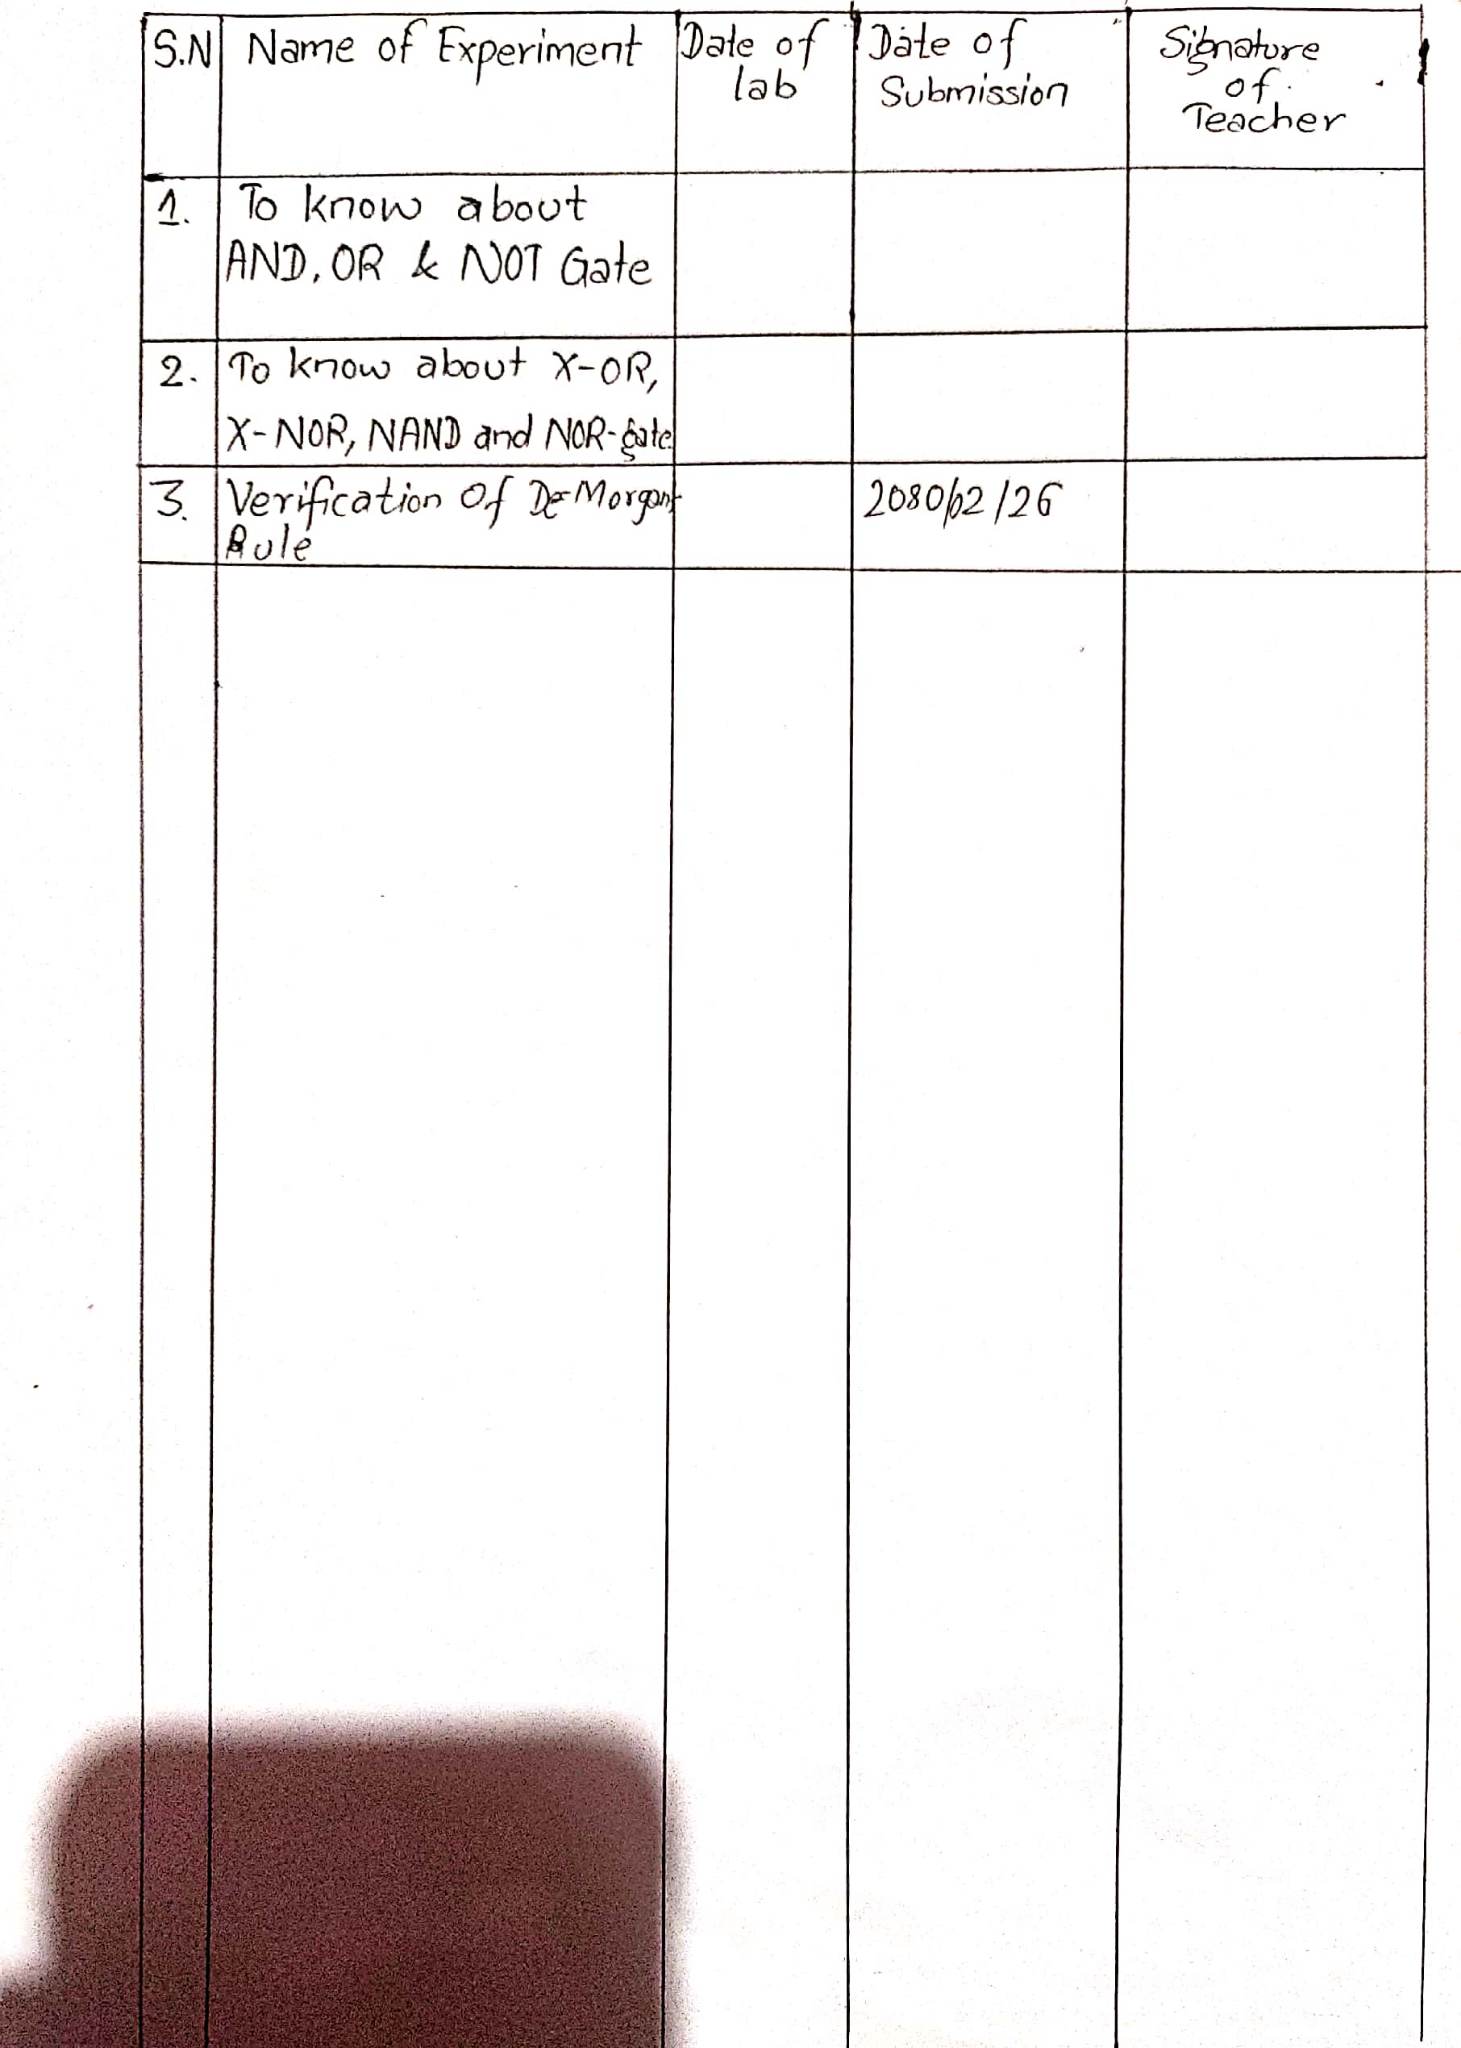 S.N Name of Experiment Date of lab Date of Submission Signature of Teacher
1. To know about
AND, OR & NOT Gate
2. To know about X-OR,
X-NOR, NAND and NOR-gate
3. Verification Of De-Morgan's 2080/02/26
Rule